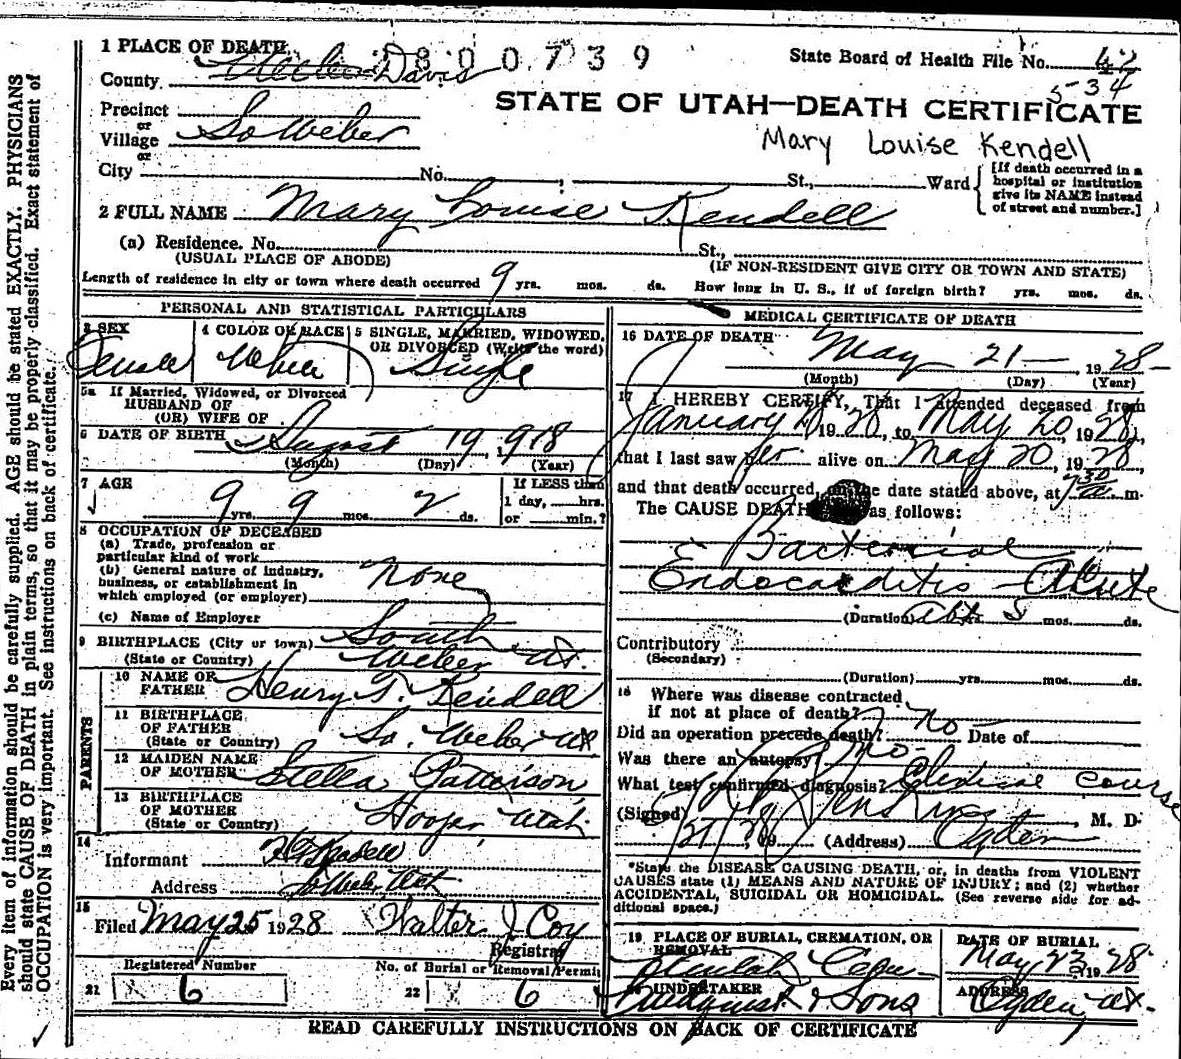 1 PLACE OF DEATH 1800739 State Board of Health File No. 42
County Davis 534
STATE OF UTAH—DEATH CERTIFICATE
Precinct
or
Village So Weber
Mary Louise Kendell
or
City No. St., Ward
[If death occurred in a
hospital or institution
give its NAME instead
of street and number.]
2 FULL NAME Mary Louise Kendell
(a) Residence. No. St.,
(USUAL PLACE OF ABODE) (IF NON-RESIDENT GIVE CITY OR TOWN AND STATE)
Length of residence in city or town where death occurred 9 yrs. mos. ds. How long in U. S., if of foreign birth? yrs. mos. ds.
PERSONAL AND STATISTICAL PARTICULARS
3 SEX 4 COLOR OR RACE 5 SINGLE, MARRIED, WIDOWED,
OR DIVORCED (Write the word)
Female White Single
5a If Married, Widowed, or Divorced
HUSBAND OF
(OR) WIFE OF
6 DATE OF BIRTH August 19 1918
(Month) (Day) (Year)
7 AGE 9 yrs. 9 mos. 2 ds.
If LESS than
1 day, hrs.
or min.?
8 OCCUPATION OF DECEASED
(a) Trade, profession or
particular kind of work
(b) General nature of industry,
business, or establishment in
which employed (or employer)
None
(c) Name of Employer
9 BIRTHPLACE (City or town) South
(State or Country) Weber Ut.
PARENTS
10 NAME OF
FATHER Henry T. Kendell
11 BIRTHPLACE
OF FATHER
(State or Country) So. Weber Ut
12 MAIDEN NAME
OF MOTHER Stella Patterson
13 BIRTHPLACE
OF MOTHER
(State or Country) Hooper Utah
14
Informant Kendell
Address So Weber Utah
15
Filed May 25 1928 Walter J Coy
Registrar
Registered Number No. of Burial or Removal Permit
21 6 22 6
MEDICAL CERTIFICATE OF DEATH
16 DATE OF DEATH May 21— , 1928—
(Month) (Day) (Year)
17 I HEREBY CERTIFY, That I attended deceased from
January 1928, to May 20, 1928,
that I last saw her alive on May 20, 1928,
and that death occurred, on the date stated above, at 7 30 a m.
The CAUSE DEATH as follows:
Bacterial
Endocarditis — Acute
(Duration) abt 5 mos. ds.
Contributory
(Secondary)
(Duration) yrs. mos. ds.
18 Where was disease contracted
if not at place of death?
Did an operation precede death? no Date of
Was there an autopsy? no
What test confirmed diagnosis? Clinical Course
(Signed) Jenkins , M. D.
5/21, 1928. (Address) Ogden
*State the DISEASE CAUSING DEATH, or, in deaths from VIOLENT
CAUSES state (1) MEANS AND NATURE OF INJURY; and (2) whether
ACCIDENTAL, SUICIDAL OR HOMICIDAL. (See reverse side for ad-
ditional space.)
19 PLACE OF BURIAL, CREMATION, OR
REMOVAL
DATE OF BURIAL
May 23, 1928
20 UNDERTAKER
Lindquist & Sons
ADDRESS
Ogden, Ut.
READ CAREFULLY INSTRUCTIONS ON BACK OF CERTIFICATE
Every item of information should be carefully supplied. AGE should be stated EXACTLY. PHYSICIANS
should state CAUSE OF DEATH in plain terms, so that it may be properly classified. Exact statement of
OCCUPATION is very important. See instructions on back of certificate.